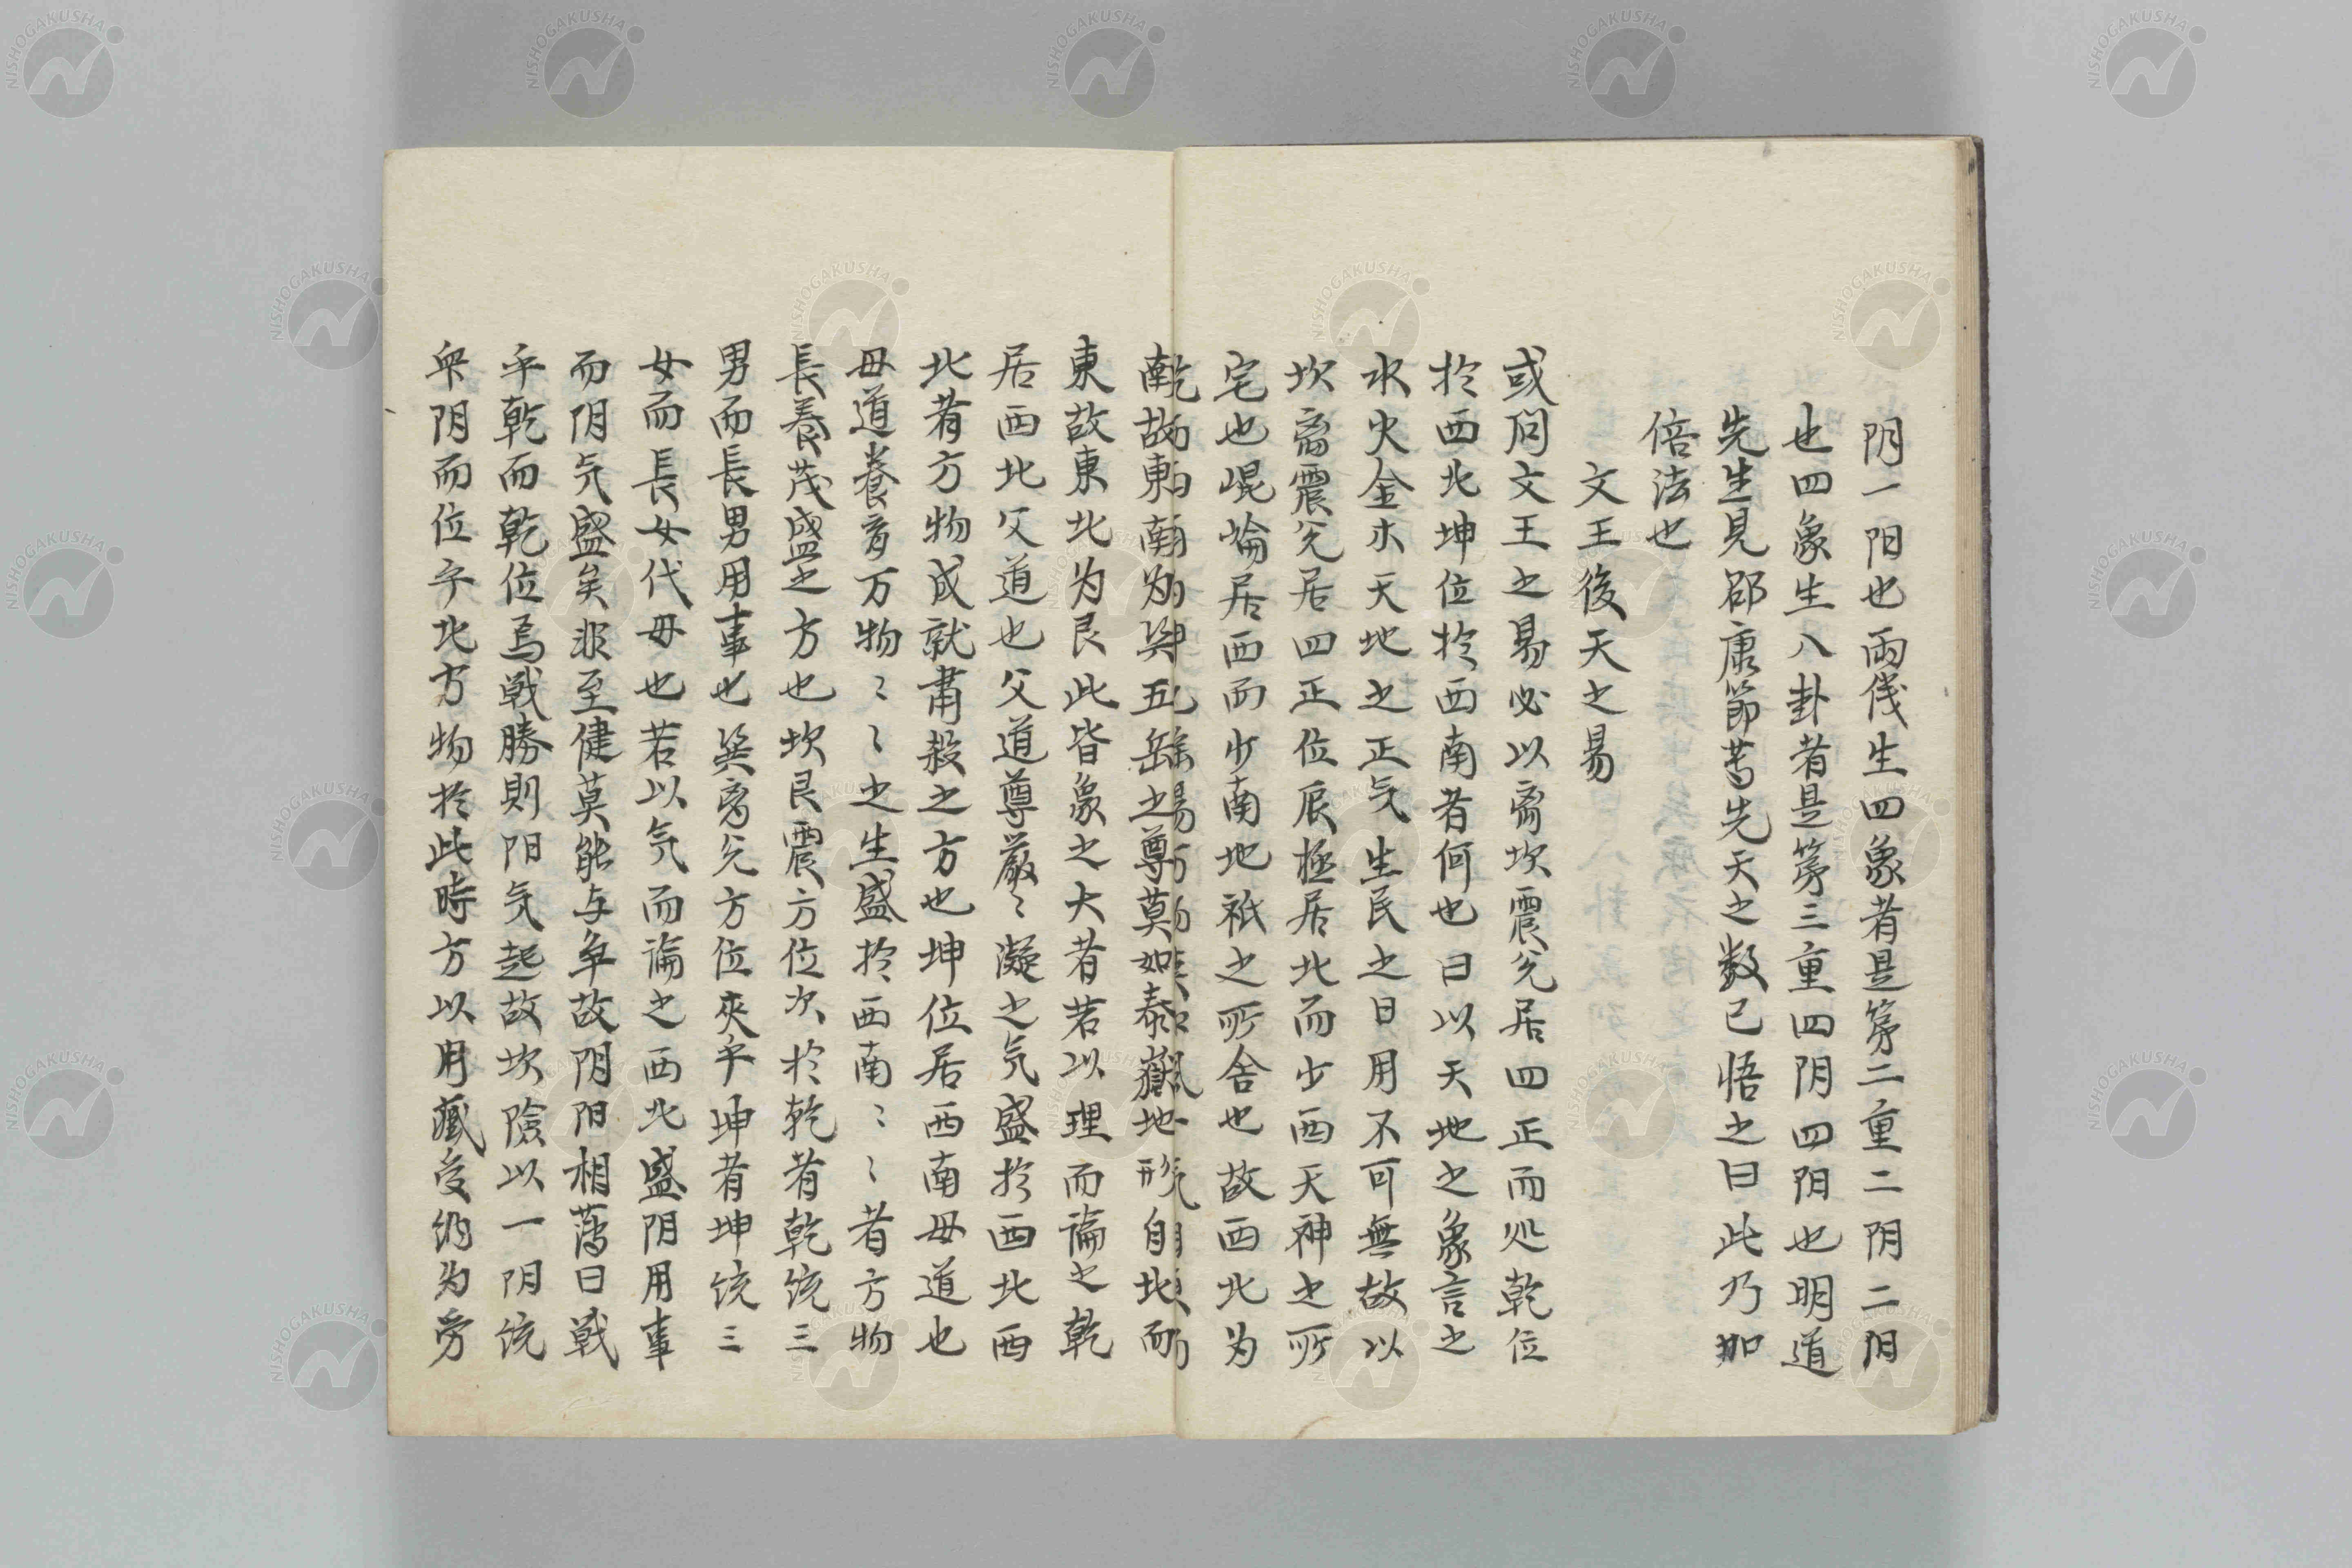 阴一阳也两仪生四象者是第二重二阴二阳
也四象生八卦者是第三重四阴四阳也明道
先生見邵康節昔先天之数已悟之曰此乃加
倍法也
文王後天之易
或问文王之易必以离坎震兑居四正而处乾位
於西北坤位於西南者何也曰以天地之象言之
水火金木天地之正气生民之日用不可無故以
坎离震兑居四正位辰極居北而少西天神之所
宅也崐崘居西而少南地祇之所舍也故西北为
南故東南为巽五岳之尊莫如泰嶽地形自北而
東故東北为艮此皆象之大者若以理而論之乾
居西北父道也父道尊嚴〻凝之气盛於西北西
北者方物成就肅殺之方也坤位居西南母道也
母道養育万物〻〻之生盛於西南〻〻者方物
長養茂盛之方也坎艮震方位次於乾者乾统三
男而長男用事也巽离兑方位夾乎坤者坤统三
女而長女代母也若以气而論之西北盛阴用事
而阴气盛矣非至健莫能与争故阴阳相薄曰戦
乎乾而乾位焉戦勝則阳气起故坎險以一阴统
众阴而位乎北方物於此時方以用藏受纳为劳
NISHOGAKUSHA